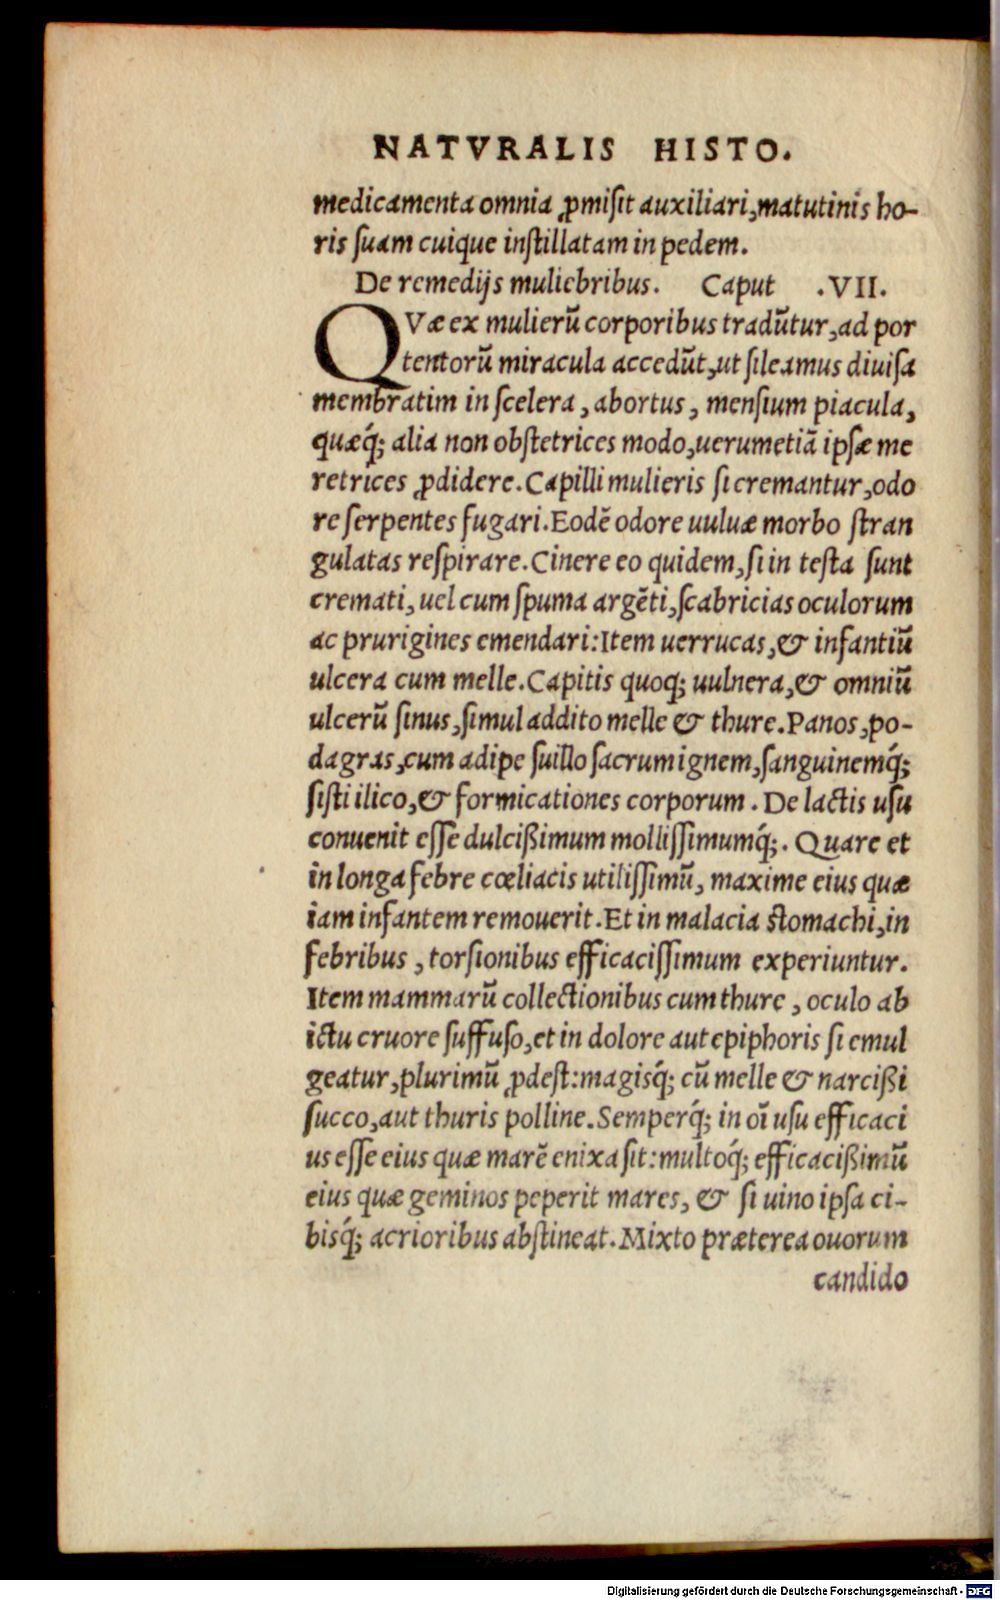 NATVRALIS HISTO.
medicamenta omnia ꝓmiſit auxiliari,matutinis ho-
ris ſuam cuique inſtillatam in pedem.
De remedijs muliebribus. Caput .VII.
QVæ ex mulierū corporibus tradūtur,ad por
tentorū miracula accedūt,ut ſileamus diuiſa
membratim in ſcelera, abortus, menſium piacula,
quæq́; alia non obſtetrices modo,uerumetiā ipſæ me
retrices ꝓdidere.Capilli mulieris ſi cremantur,odo
re ſerpentes fugari.Eodē odore uuluæ morbo ſtran
gulatas reſpirare.Cinere eo quidem,ſi in teſta ſunt
cremati, uel cum ſpuma argēti,ſcabricias oculorum
ac prurigines emendari:Item uerrucas,& infantiū
ulcera cum melle.Capitis quoq; uulnera,& omniū
ulcerū ſinus,ſimul addito melle & thure.Panos,po-
dagras,cum adipe ſuillo ſacrum ignem,ſanguinemq́;
ſiſti ilico,& formicationes corporum. De lactis uſu
conuenit eſſe dulcißimum molliſſimumq́;. Quare et
in longa febre cœliacis utiliſſimū, maxime eius quæ
iam infantem remouerit.Et in malacia ſtomachi,in
febribus, torſionibus efficaciſſimum experiuntur.
Item mammarū collectionibus cum thure, oculo ab
ictu cruore ſuffuſo,et in dolore aut epiphoris ſi emul
geatur,plurimū ꝓdeſt:magisq́; cū melle & narcißi
ſucco,aut thuris polline.Semperq́; in oī uſu efficaci
us eſſe eius quæ marē enixa ſit:multoq́; efficacißimū
eius quæ geminos peperit mares, & ſi uino ipſa ci-
bisq́; acrioribus abſtineat.Mixto præterea ouorum
candido
Digitalisierung gefördert durch die Deutsche Forschungsgemeinschaft - DFG